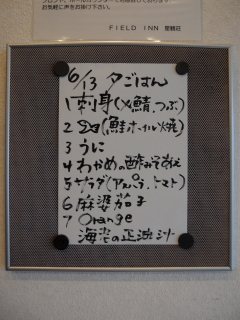 お気軽に声をお掛け下さい。
FIELD INN 星観荘
6/13 夕ごはん
1 刺身(〆鯖,つぶ)
2 (鮭ホイル焼)
3 うに
4 わかめの酢みそあえ
5 サラダ(アスパラ,トマト)
6 麻婆茄子
7 Orange
海老の正油汁